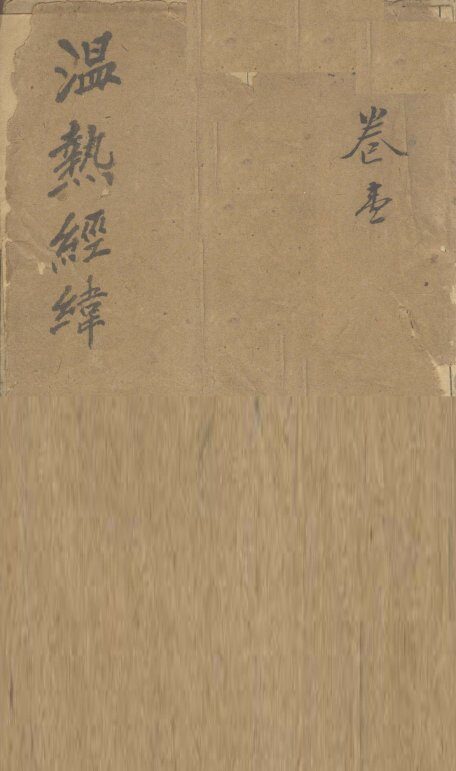 卷壹
温熱經緯